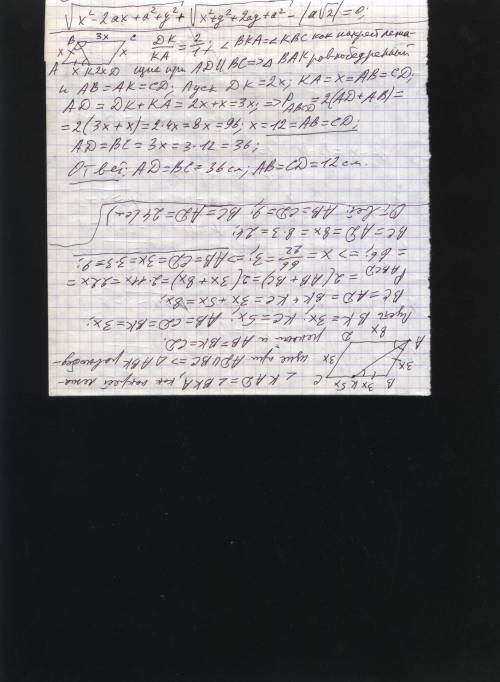 √x² - 2ax + a² + y² + √x² + y² + 2ay + a² - |a√2| = 0;
B 3x C
x x
A x K 2x D
DK/KA = 2/1; ∠BKA = ∠KBC как накрест лежа-
щие при AD ∪ BC => △BAK равнобедренный
и AB = AK = CD; Пусть DK = 2x; KA = x = AB = CD;
AD = DK + KA = 2x + x = 3x; => P ABCD = 2(AD + AB) =
= 2(3x + x) = 2·4x = 8x = 96; x = 12 = AB = CD;
AD = BC = 3x = 3·12 = 36;
Ответ: AD = BC = 36 см; AB = CD = 12 см.
∠KAD = ∠BKA, как накрест лежа-
щие при AD ∪ BC => △ABK равнобед-
ренный и AB = BK = CD.
A B
3x
3x K 5x C
3x
8x D
Пусть BK = 3x; KC = 5x; AB = CD = BK = 3x;
BC = AD = BK + KC = 3x + 5x = 8x;
P ABCD = 2(AB + BC) = 2(3x + 8x) = 2·11x = 22x =
= 66; => x = 66/22 = 3; => AB = CD = 3x = 3·3 = 9;
BC = AD = 8x = 8·3 = 24;
Ответ: AB = CD = 9; BC = AD = 24 (см)